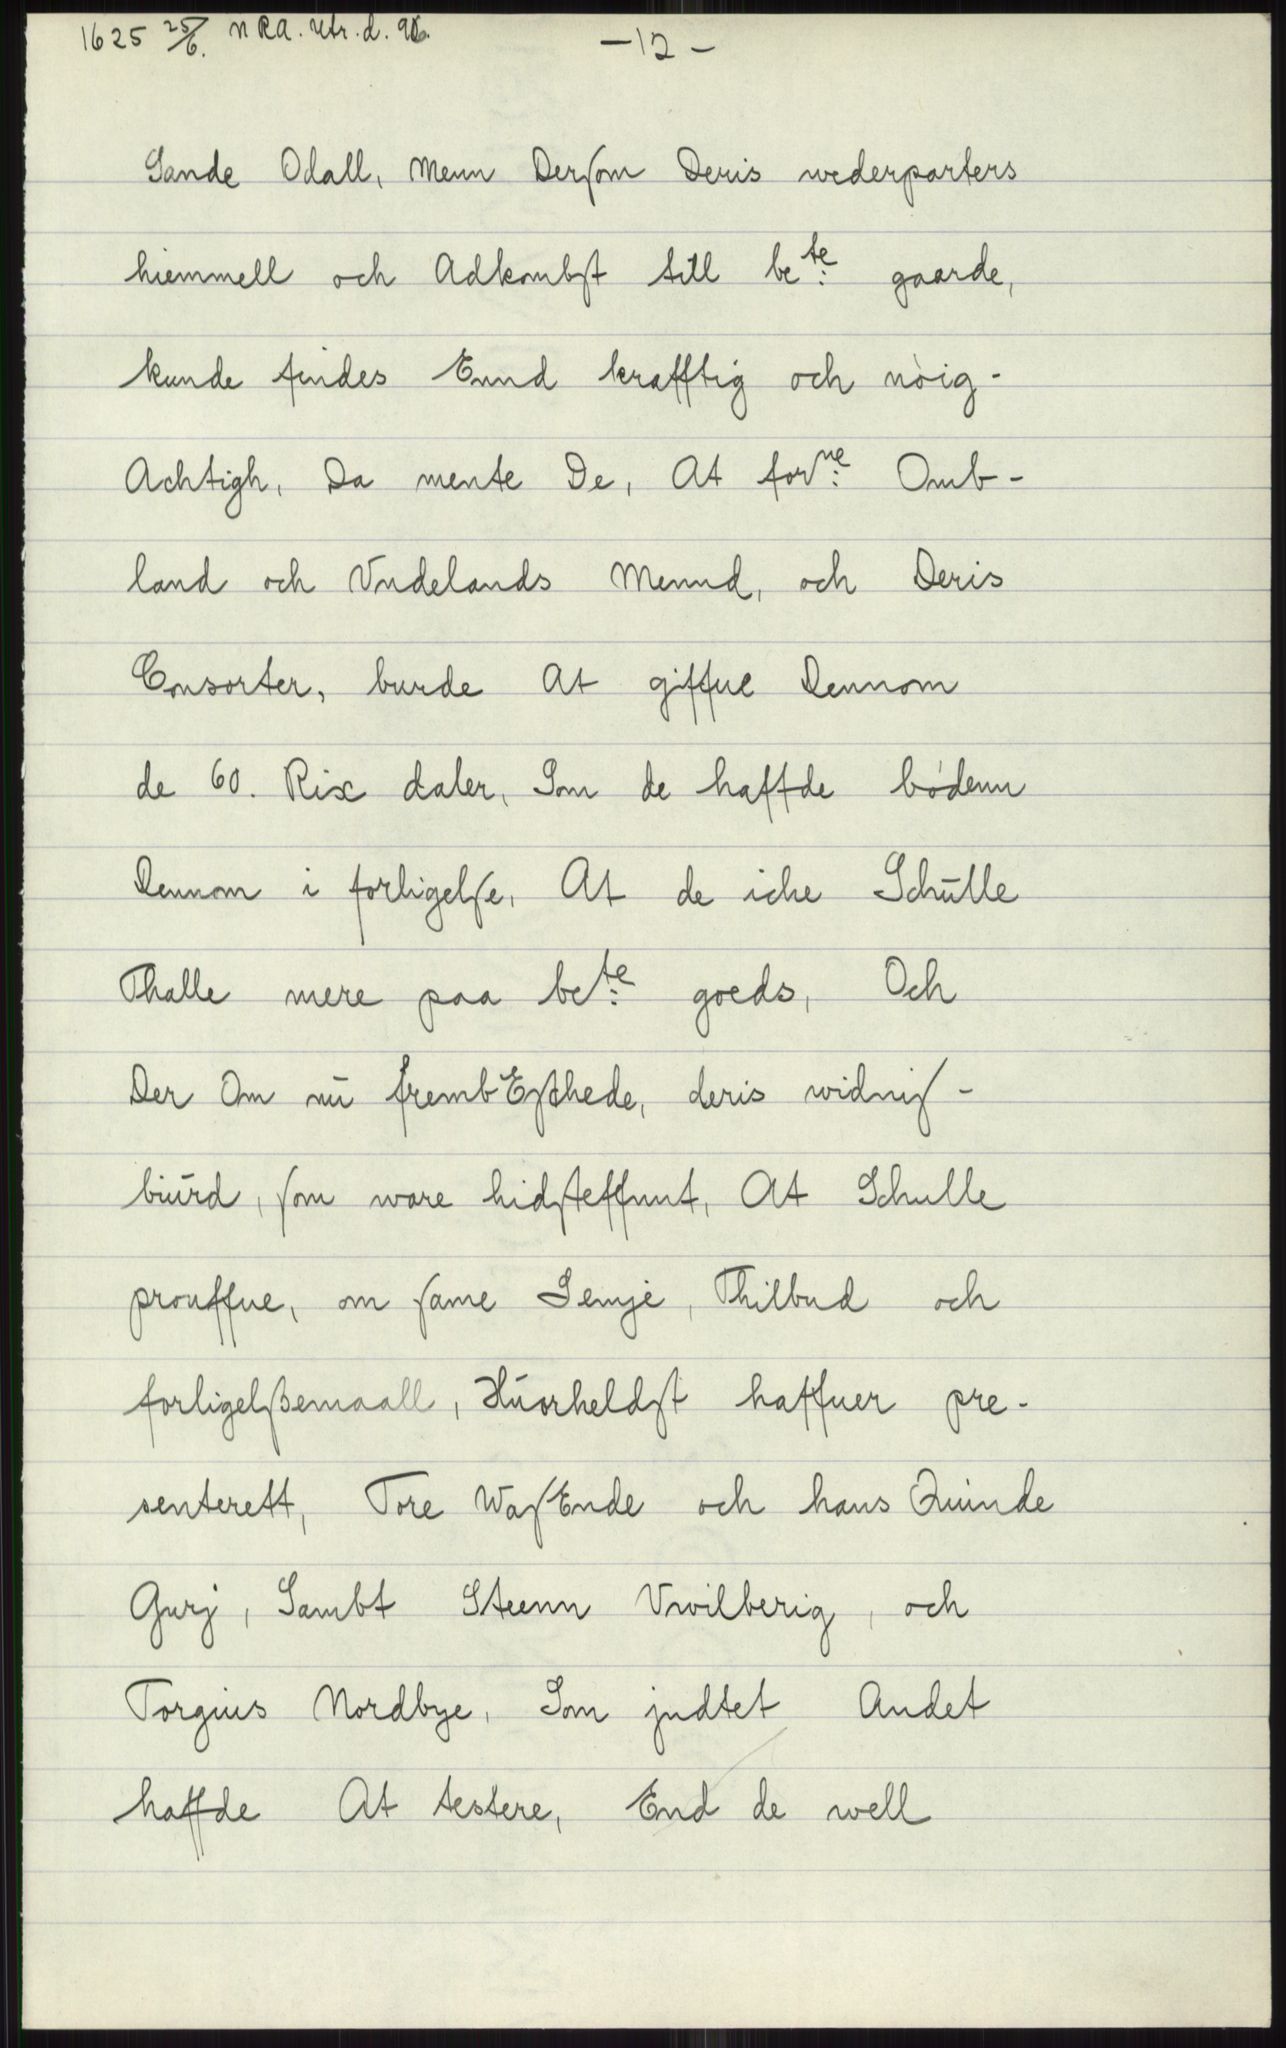 1625 25/6. NRA. Utr. d. 96.
-12-
Sande Odall, Menn Derſom Deris wederparters
hiemmell och Adkombſt till be te: gaarde,
kunde findes Ennd krafftig och nòig-
Achtigh, Da mente De, At for ne: Omb-
land och Vndelands Mennd, och Deris
Consorter, burde At giffue Dennom
de 60. Rix daler, Som de haffde bódenn
Dennom i forligelſe, At de iche Schūlle
Thalle mere paa be te: goeds, Och
Der Om nū frembEſchede, deris widniſ-
biūrd, ſom ware hidſteffnnt, At Schulle
prouffue, om ſame Semje, Thilbud och
forligelſßemaall, Huorheldſt haffuer pre-
senterett, Tore WaſEnde och hans Quinde
Gurj, Sambt Steenn Vwilberig, och
Torgius Nordbye, Som jndtet Andet
haffde At testere, End de well